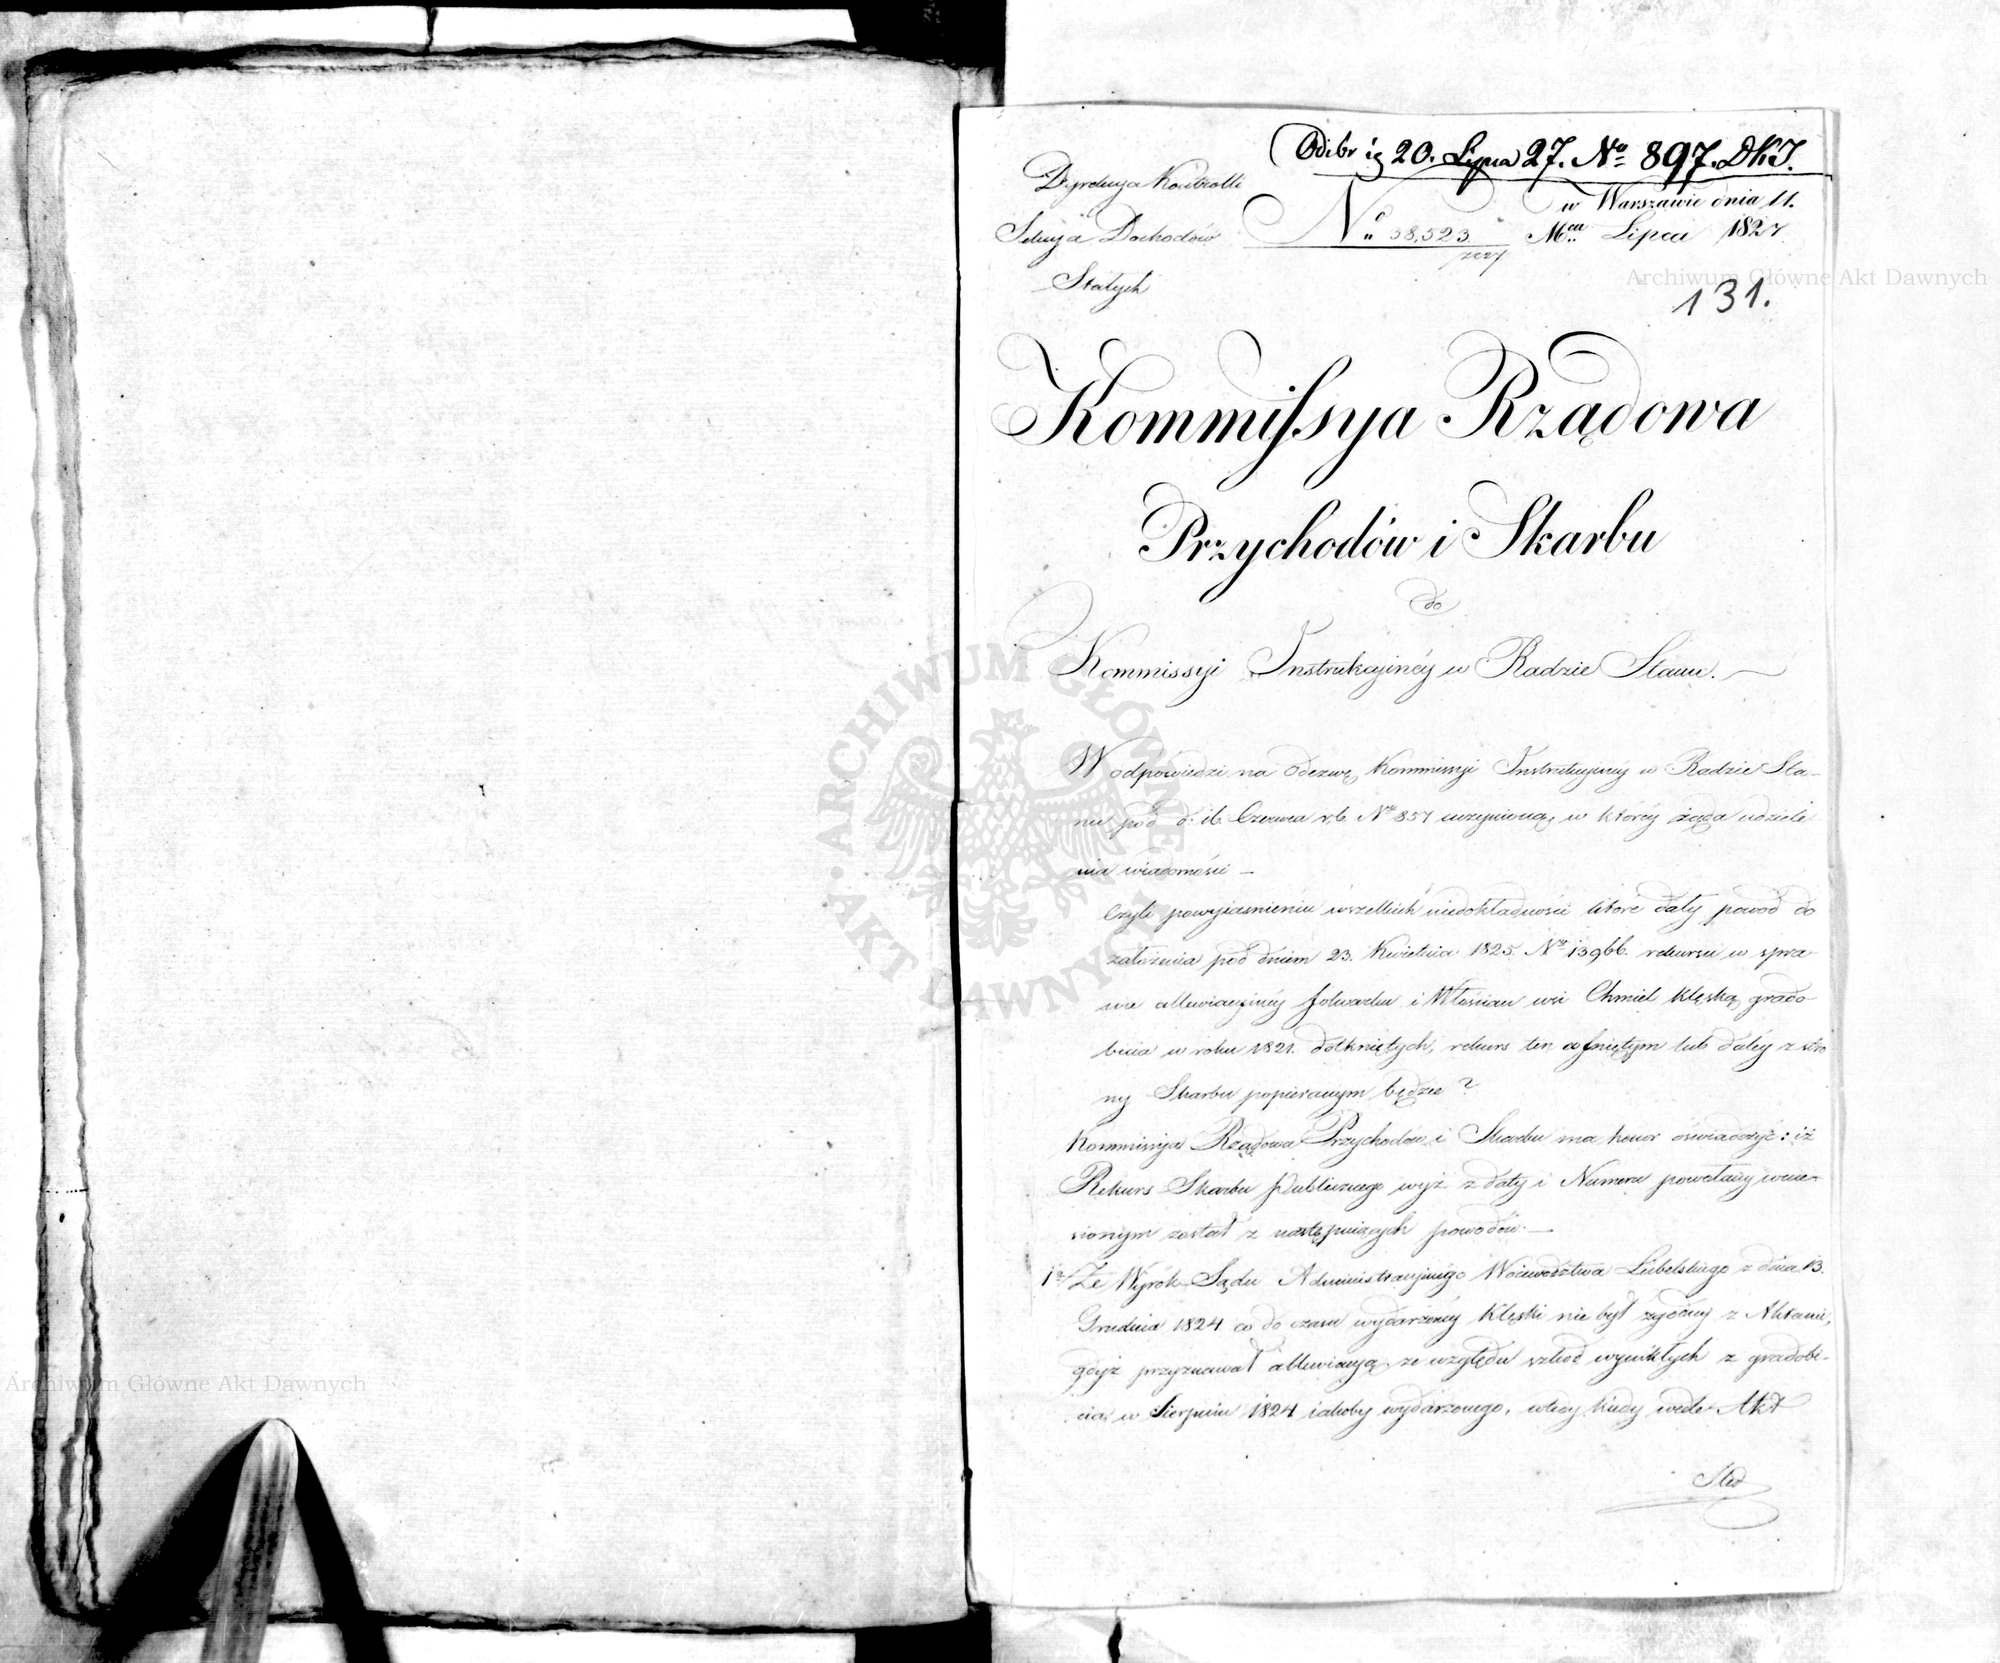 Odebr ię 20. Lipca 27. No 897. DKJ.
Dyrekcya Kontrolli
w Warszawie dnia 11.
Sekcya Dochodów No 58,523 Mca Lipca 1827
Stałych
131.
Kommissya Rządowa
Przychodów i Skarbu
do
Kommissyi Instrukcyinéy w Radzie Stanu.
W odpowiedzi na odezwę Kommissyi Instrukcyinéy w Radzie Sta-
nu pod d. 16. Czerwca r.b. No 857 uczynioną, w któréy żąda udziele
nia wiadomości —
Czyli powyiaśnieniu wszelkich niedokładności które dały powód do
założenia pod dniem 23. Kwietnia 1825. No 13966. rekursu w spra-
wie allewiacyinéy folwarku i Włościan wsi Chmiel klęską grado-
bicia w roku 1821. dotkniętych, rekurs ten cofniętym lub daléy z stro
ny Skarbu popieranym będzie?
Kommissya Rządowa Przychodów i Skarbu ma honor oświadczyć: iż
Rekurs Skarbu Publicznego wyż z daty i Numeru powołany wnie-
sionym został z następuiących powodów. —
1o/ Że Wyrok Sądu Administracyinego Woiewództwa Lubelskiego z dnia 13.
Grudnia 1824 co do czasu wydarzonéy klęski nie był zgodny z Aktami,
gdyż przyznawał allewiacyą ze względu szkód wynikłych z gradobi-
cia w Sierpniu 1824 iakoby wydarzonego, wtedy kiedy wedle Akt
Archiwum Główne Akt Dawnych
Archiwum Główne Akt Dawnych
ARCHIWUM GŁÓWNE AKT DAWNYCH